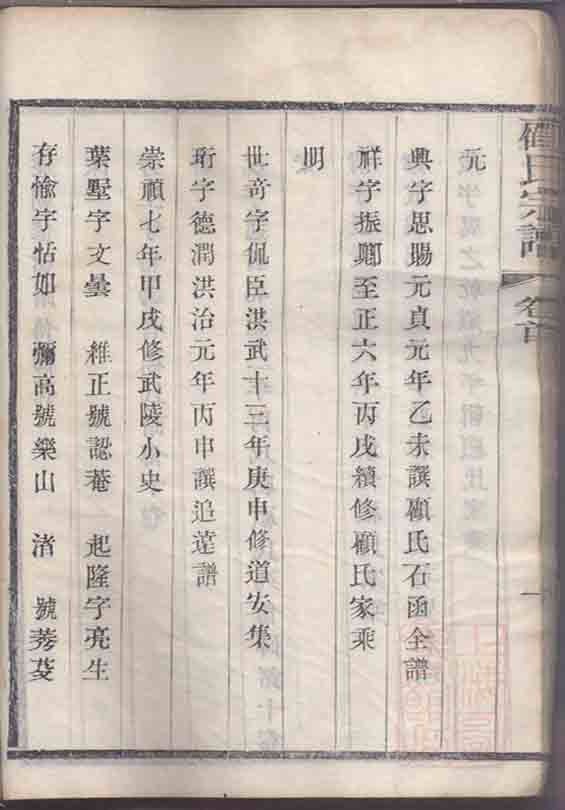 顧氏宗譜 卷首 一
元
興字思賜元貞元年乙未譔顧氏石函全譜
祥字振卿至正六年丙戌續修顧氏家乘
明
世奇字侃臣洪武十三年庚申修道安集
珩字德潤洪治元年丙申譔追遠譜
崇禎七年甲戌修武陵小史
葉墅字文曇 維正號認菴 起隆字亮生
存愉字恬如 彌高號樂山 渚 號莠芰